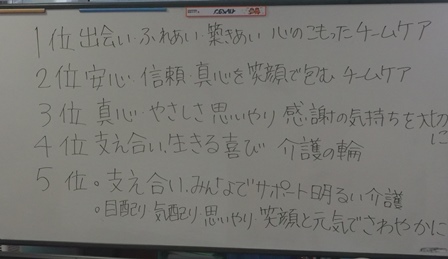 1位 出会い・ふれあい・築きあい 心のこもったチームケア
2位 安心・信頼・真心を笑顔で包む チームケア
3位 真心・やさしさ 思いやり 感謝の気持ちを大切に
4位 支え合い、生きる喜び 介護の輪
5位 。支え合い、みんなでサポート明るい介護
。目配り 気配り 思いやり 笑顔と元気でさわやかに